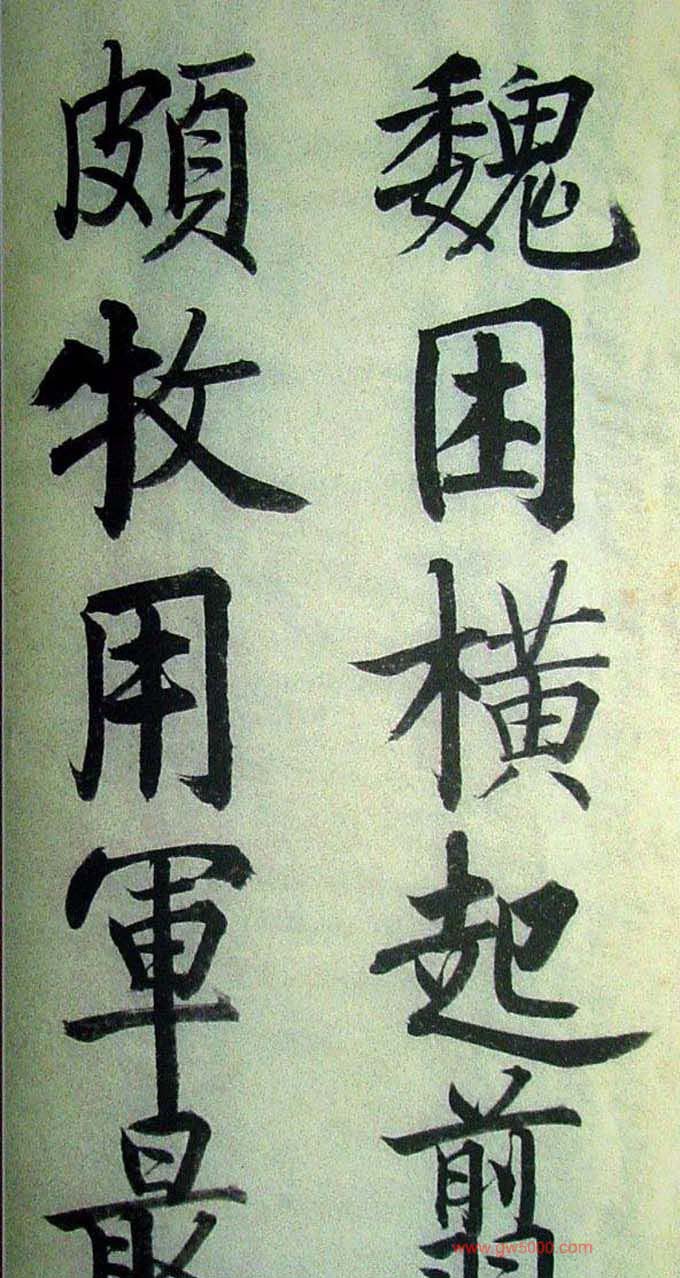 魏困橫起翦
頗牧用軍最
www.gw5000.com